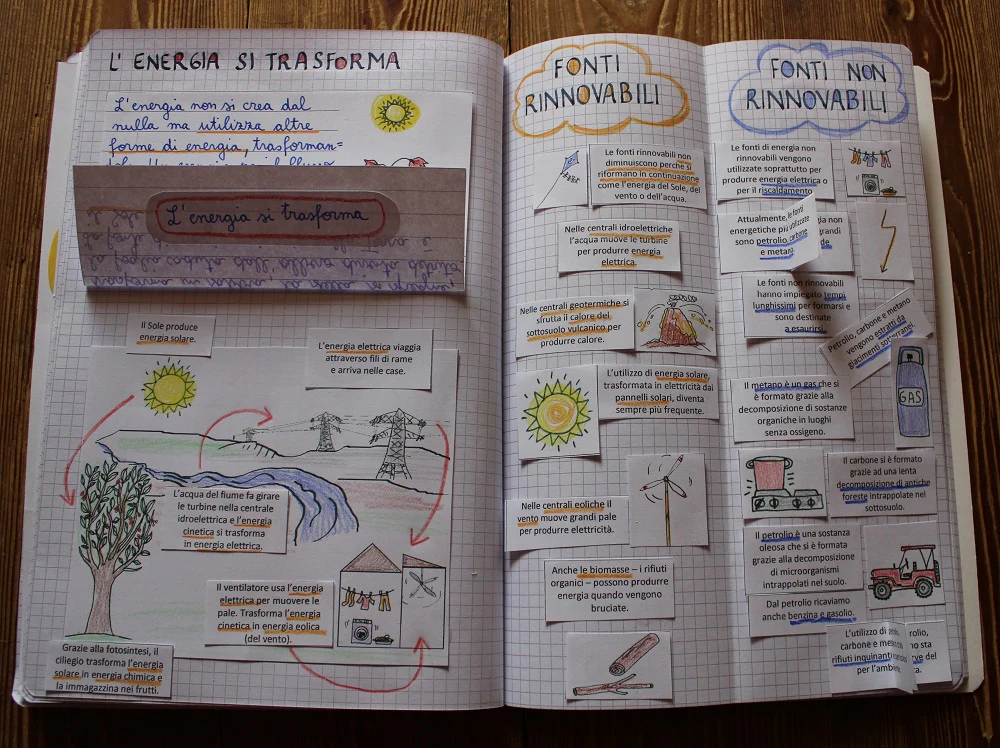 L'ENERGIA SI TRASFORMA
L'energia non si crea dal
nulla ma utilizza altre
forme di energia, trasforman=
L'energia si trasforma
Il Sole produce
energia solare.
L'energia elettrica viaggia
attraverso fili di rame
e arriva nelle case.
L'acqua del fiume fa girare
le turbine nella centrale
idroelettrica e l'energia
cinetica si trasforma
in energia elettrica.
Il ventilatore usa l'energia
elettrica per muovere le
pale. Trasforma l'energia
cinetica in energia eolica
(del vento).
Grazie alla fotosintesi, il
ciliegio trasforma l'energia
solare in energia chimica e
la immagazzina nei frutti.
FONTI
RINNOVABILI
Le fonti rinnovabili non
diminuiscono perché si
riformano in continuazione
come l'energia del Sole, del
vento o dell'acqua.
Nelle centrali idroelettriche
l'acqua muove le turbine
per produrre energia
elettrica.
Nelle centrali geotermiche si
sfrutta il calore del
sottosuolo vulcanico per
produrre calore.
L'utilizzo di energia solare,
trasformata in elettricità dai
pannelli solari, diventa
sempre più frequente.
Nelle centrali eoliche il
vento muove grandi pale
per produrre elettricità.
Anche le biomasse – i rifiuti
organici – possono produrre
energia quando vengono
bruciate.
FONTI NON
RINNOVABILI
Le fonti di energia non
rinnovabili vengono
utilizzate soprattutto per
produrre energia elettrica o
per il riscaldamento
Attualmente, le fonti
energetiche più utilizzate
sono petrolio, carbone
e metano.
Le fonti non rinnovabili
hanno impiegato tempi
lunghissimi per formarsi e
sono destinate
a esaurirsi.
Petrolio, carbone e metano
vengono estratti da
giacimenti sotterranei.
GAS
Il metano è un gas che si
è formato grazie alla
decomposizione di sostanze
organiche in luoghi
senza ossigeno.
Il carbone si è formato
grazie ad una lenta
decomposizione di antiche
foreste intrappolate nel
sottosuolo.
Il petrolio è una sostanza
oleosa che si è formata
grazie alla decomposizione
di microorganismi
intrappolati nel suolo.
Dal petrolio ricaviamo
anche benzina e gasolio.
L'utilizzo di
carbone e
rifiuti inquinanti
per l'ambie